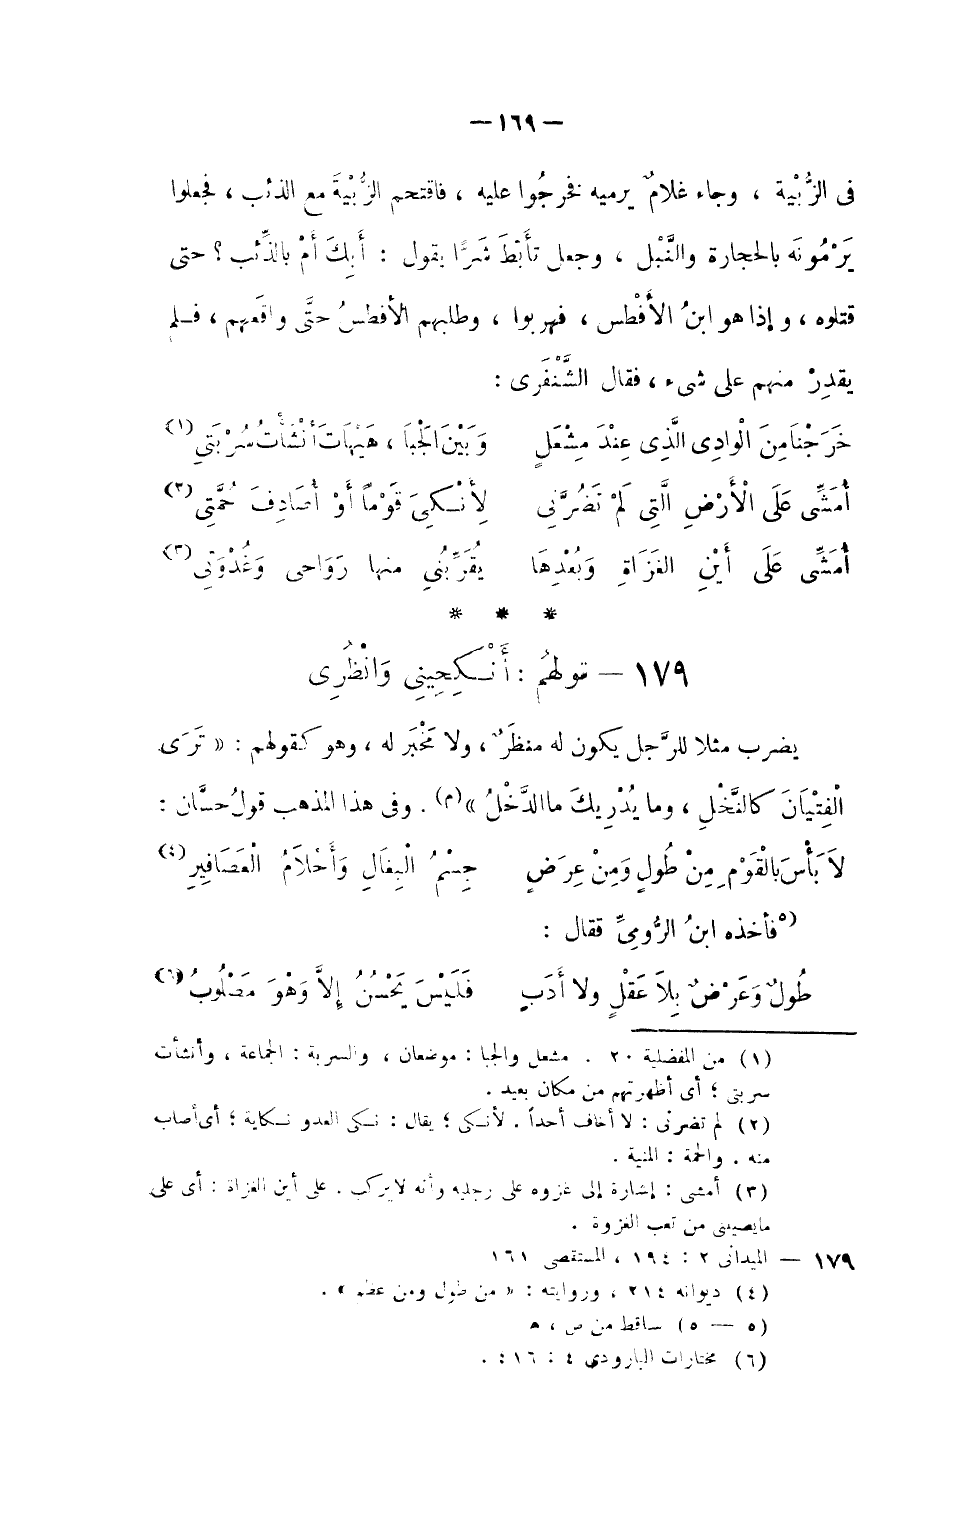 — ١٦٩ —
فى الزُّبْية ، وجاء غلامٌ يرميه فخرجُوا عليه ، فاقتحم الزُّبْيةَ مع الذئب ، فجعلوا
يَرْمُونَه بالحجارة والنَّبْل ، وجعل تأبّطَ شَرًّا يقول : أَبِكَ أَمْ بالذِّئب ؟ حتى
قتلوه ، وإذا هو ابنُ الأَفْطس ، فهربوا ، وطلبهم الأفطسُ حتَّى واقَعهم ، فلم
يقدِرْ منهم على شىء ، فقال الشَّنْفَرى :
خَرَجْنَا مِنَ الْوادِى الَّذِى عِنْدَ مِشْعَلٍ وَبَيْنَ الْجَبَا ، هَيْهَاتَ أَنْشَأْتُ سُرْبَتِى (١)
أُمَشِّى عَلَى الْأَرْضِ الَّتِى لَمْ تَضُرَّنِى لِأَنْكِىَ قَوْماً أَوْ أُصَادِفَ حُمَّتِى (٢)
أُمَشِّى عَلَى أَيْنِ الغَزَاةِ وَبُعْدِهَا يُقَرِّبُنِى منها رَوَاحى وَغُدْوَتِى (٣)
* * *
١٧٩ — قولهُم : أَنْكِحِينِى وَانْظُرِى
يضرب مثلا للرَّجل يكون له منظَرٌ ، ولا مَخْبَر له ، وهو كقولهم : « تَرَى
الْفِتْيَانَ كالنَّخْلِ ، وما يُدْرِيكَ ما الدَّخْلُ » (م) . وفى هذا المذهب قولُ حسَّان :
لَا بَأْسَ بالْقَوْمِ مِنْ طُولٍ وَمِنْ عِرَضٍ جِسْمُ الْبِغَالِ وَأَحْلَامُ الْعَصَافِيرِ (٤)
(٥ فأخذه ابنُ الرُّومىِّ فقال :
طُولٌ وَعَرْضٌ بِلَا عَقْلٍ ولا أَدَبٍ فَلَيْسَ يَحْسُنُ إِلاَّ وَهْوَ مَصْلُوبُ (٦)
(١) من المفضلية ٢٠ . مشعل والجبا : موضعان ، والسربة : الجماعة ، وأنشأت
سربتى ؛ أى أظهرتهم من مكان بعيد .
(٢) لم تضرنى : لا أخاف أحداً . لأنكى ؛ يقال : نكى العدو نكاية ؛ أى أصاب
منه . والحمة : المنية .
(٣) أمشى : إشارة إلى غزوه على رجليه وأنه لا يركب . على أين الغزاة : أى على
ما يصيبنى من تعب الغزوة .
١٧٩ — الميدانى ٢ : ١٩٤ ، المستقصى ١٦١
(٤) ديوانه ٢١٤ ، وروايته : « من طول ومن عظم » .
(٥ — ٥) ساقط من ص ، ه
(٦) مختارات البارودى ٤ :